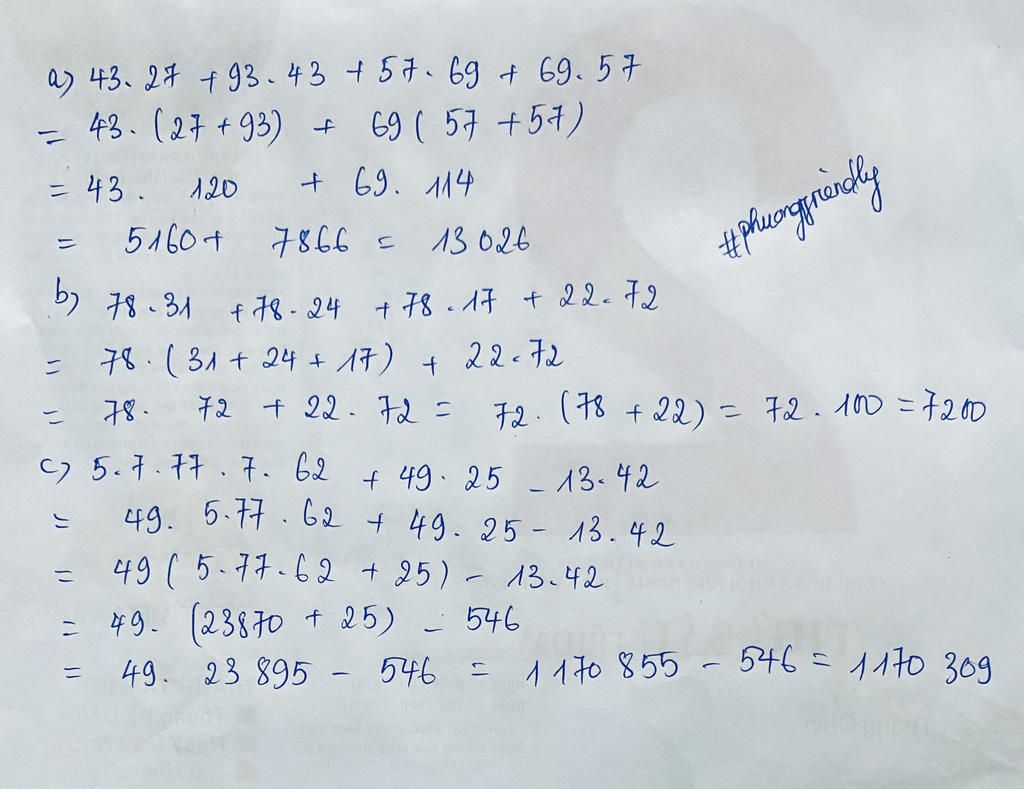 a) 43. 27 + 93. 43 + 57. 69 + 69. 57
= 43. (27 + 93) + 69 ( 57 + 57)
= 43. 120 + 69. 114
= 5160 + 7866 = 13 026
#phuongfriendly
b) 78. 31 + 78. 24 + 78. 17 + 22. 72
= 78. ( 31 + 24 + 17) + 22. 72
= 78. 72 + 22. 72 = 72. (78 + 22) = 72. 100 = 7200
c) 5. 7. 77. 7. 62 + 49. 25 - 13. 42
= 49. 5. 77. 62 + 49. 25 - 13. 42
= 49 ( 5. 77. 62 + 25) - 13. 42
= 49. (23870 + 25) - 546
= 49. 23 895 - 546 = 1 170 855 - 546 = 1 170 309